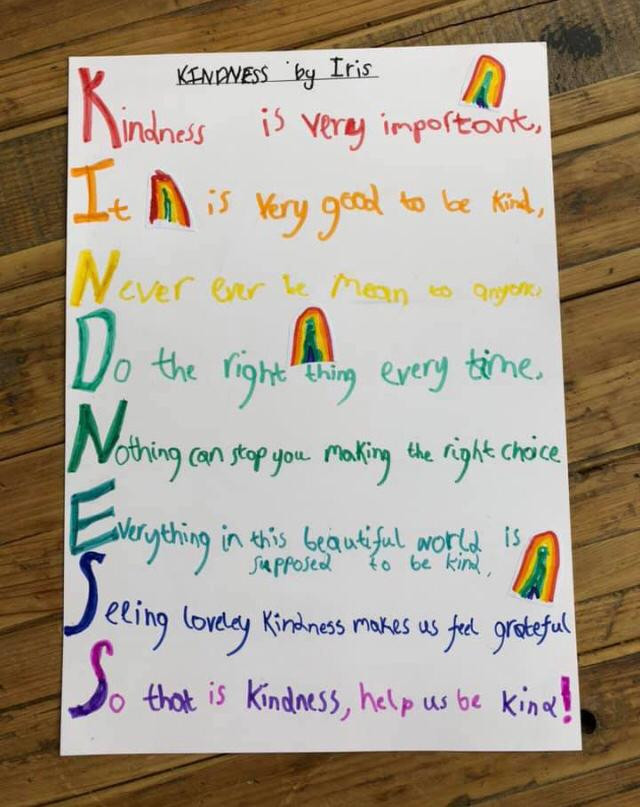 KINDNESS by Iris
Kindness is very important,
It is very good to be kind,
Never ever be mean to anyone,
Do the right thing every time,
Nothing can stop you making the right choice
Everything in this beautiful world is
supposed to be kind,
Seeing loveley kindness makes us feel grateful
So that is kindness, help us be kind!